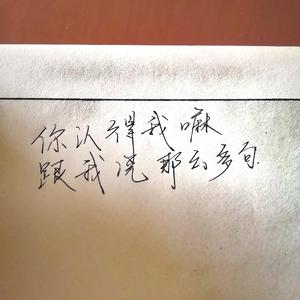 你认得我嘛
跟我说那么多句